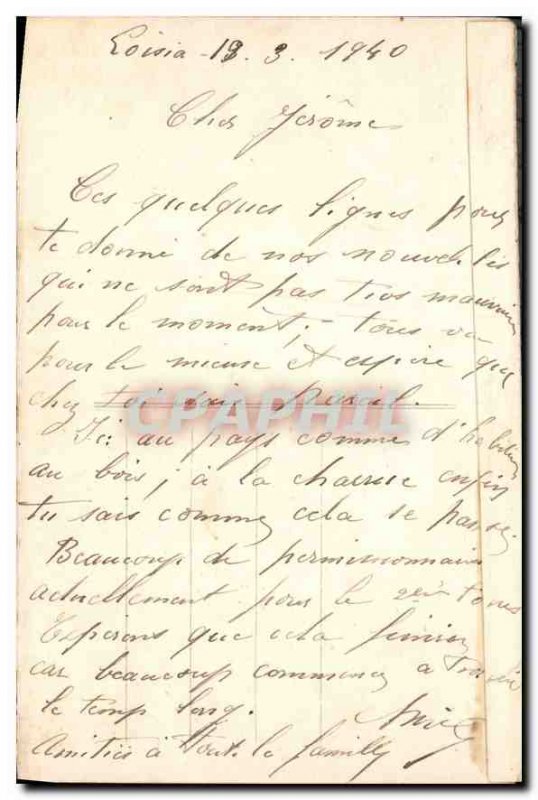 Loisia - 13. 3. 1940
Cher Jérôme
Ces quelques lignes pour
te donné de nos nouvelles
qui ne sont pas tros mauvaise
pour le moment; tous va
pour le mieuse et espère que
chez toi sais pareil.
CPAPHIL
Ici au pays comme d'habitude
au bois; à la charrue enfin
tu sais comme cela se passe.
Beaucoup de permissionnaire
actuellement pour le 2em tours
Esperons que cela finisse
car beaucoup commence a trouvé
le temp long.
Amitiés à toute la familly